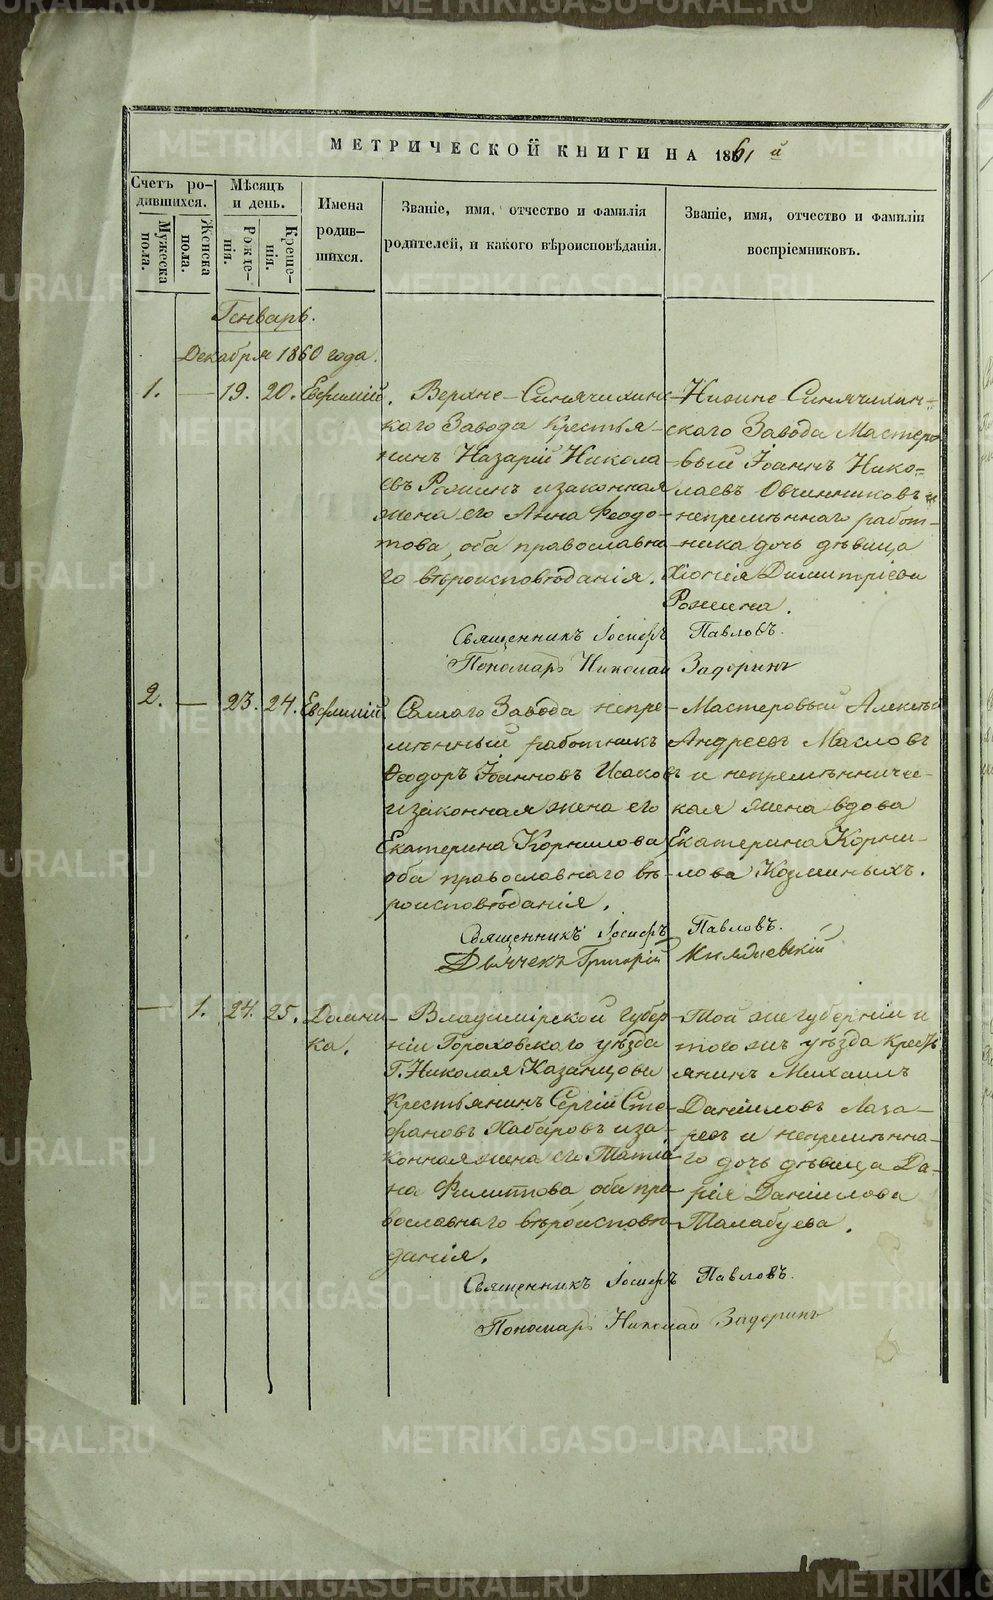 МЕТРИЧЕСКОЙ КНИГИ НА 1861й
Счетъ ро-
дившихся.
Мужеска
пола.
Женска
пола.
Мѣсяцъ
и день.
Рожде-
нія.
Креще-
нія.
Имена
родив-
шихся.
Званіе, имя, отчество и фамилія
родителей, и какого вѣроисповѣданія.
Званіе, имя, отчество и фамиліи
воспріемниковъ.
Генварь.
Декабря 1860 года.
1. — 19. 20. Евфимій.
Верхне-Синячихинс-
каго Завода крестья-
нинъ Назарій Никола-
евъ Рожинъ и законная
жена его Анна Феодо-
това, оба православна-
го вѣроисповѣданія.
Нижне Синячихин-
скаго Завода Мастеро-
вый Іоаннъ Нико-
лаевъ Овчинниковъ и
непремѣннаго работ-
ника дочь дѣвица
Хіонія Димитріева
Рожина.
Священникъ Іосифъ Павловъ.
Пономарь Николай Задоринъ
2. — 23. 24. Евфимій
Самаго Завода непре-
мѣнный работникъ
Феодоръ Іоанновъ Исаковъ
и законная жена его
Екатерина Корнилова,
оба православнаго вѣ-
роисповѣданія.
Мастеровый Алексѣй
Андреевъ Масловъ
и непремѣнниче-
кая жена вдова
Екатерина Корни-
лова Козминыхъ.
Священникъ Іосифъ Павловъ.
Дьячекъ Григорій
— 1. 24. 25. Домни-
ка.
Владимірской Губер-
ніи Гороховскаго уѣзда
Г. Николая Казанцова
Крестьянинъ Сергій Сте-
фановъ Хабаровъ и за-
конная жена его Татіа-
на Филиппова, оба пра-
вославнаго вѣроисповѣ-
данія.
Той же губерніи и
того жъ уѣзда Кресть-
янинъ Михаилъ
Данииловъ Лаза-
ревъ и непремѣнна-
го дочь дѣвица Да-
рія Даніилова
Талабуева.
Священникъ Іосифъ Павловъ.
Пономарь Николай Задоринъ
METRIKI.GASO-URAL.RU